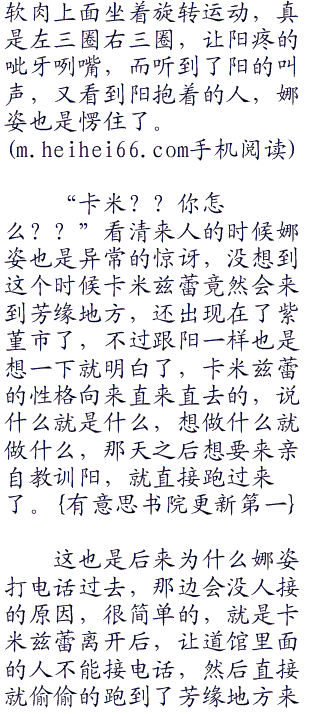 软肉上面坐着旋转运动，真
是左三圈右三圈，让阳疼的
呲牙咧嘴，而听到了阳的叫
声，又看到阳抱着的人，娜
姿也是愣住了。
(m.heihei66.com手机阅读)
“卡米？？你怎
么？？”看清来人的时候娜
姿也是异常的惊讶，没想到
这个时候卡米兹蕾竟然会来
到芳缘地方，还出现在了紫
堇市了，不过跟阳一样也是
想一下就明白了，卡米兹蕾
的性格向来直来直去的，说
什么就是什么，想做什么就
做什么，那天之后想要来亲
自教训阳，就直接跑过来
了。{有意思书院更新第一}
这也是后来为什么娜姿
打电话过去，那边会没人接
的原因，很简单的，就是卡
米兹蕾离开后，让道馆里面
的人不能接电话，然后直接
就偷偷的跑到了芳缘地方来